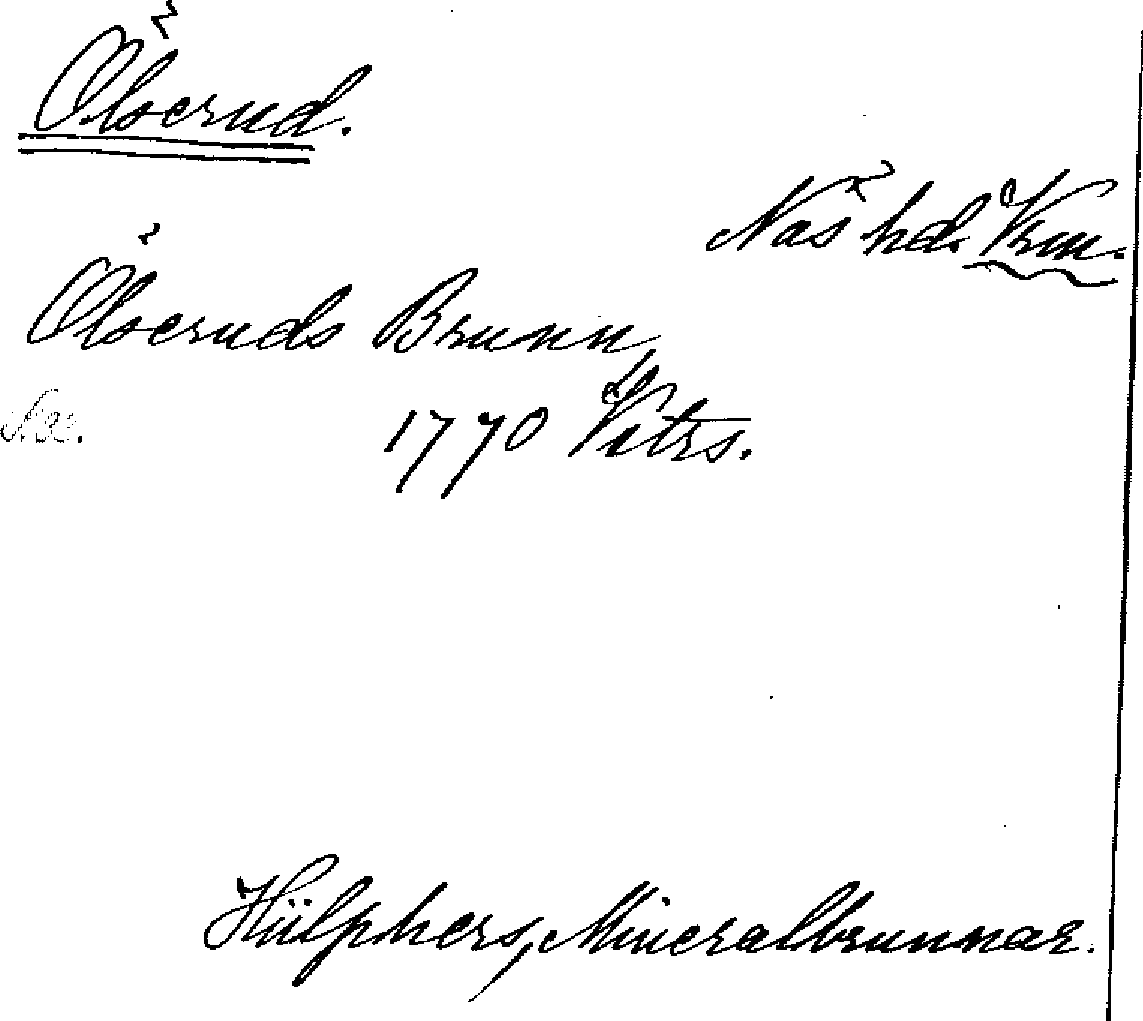 Ölserud.
Näs hd. Vrm.
Ölseruds Brunn
1770 Vitrs.
Hülphers, Mineralbrunnar.